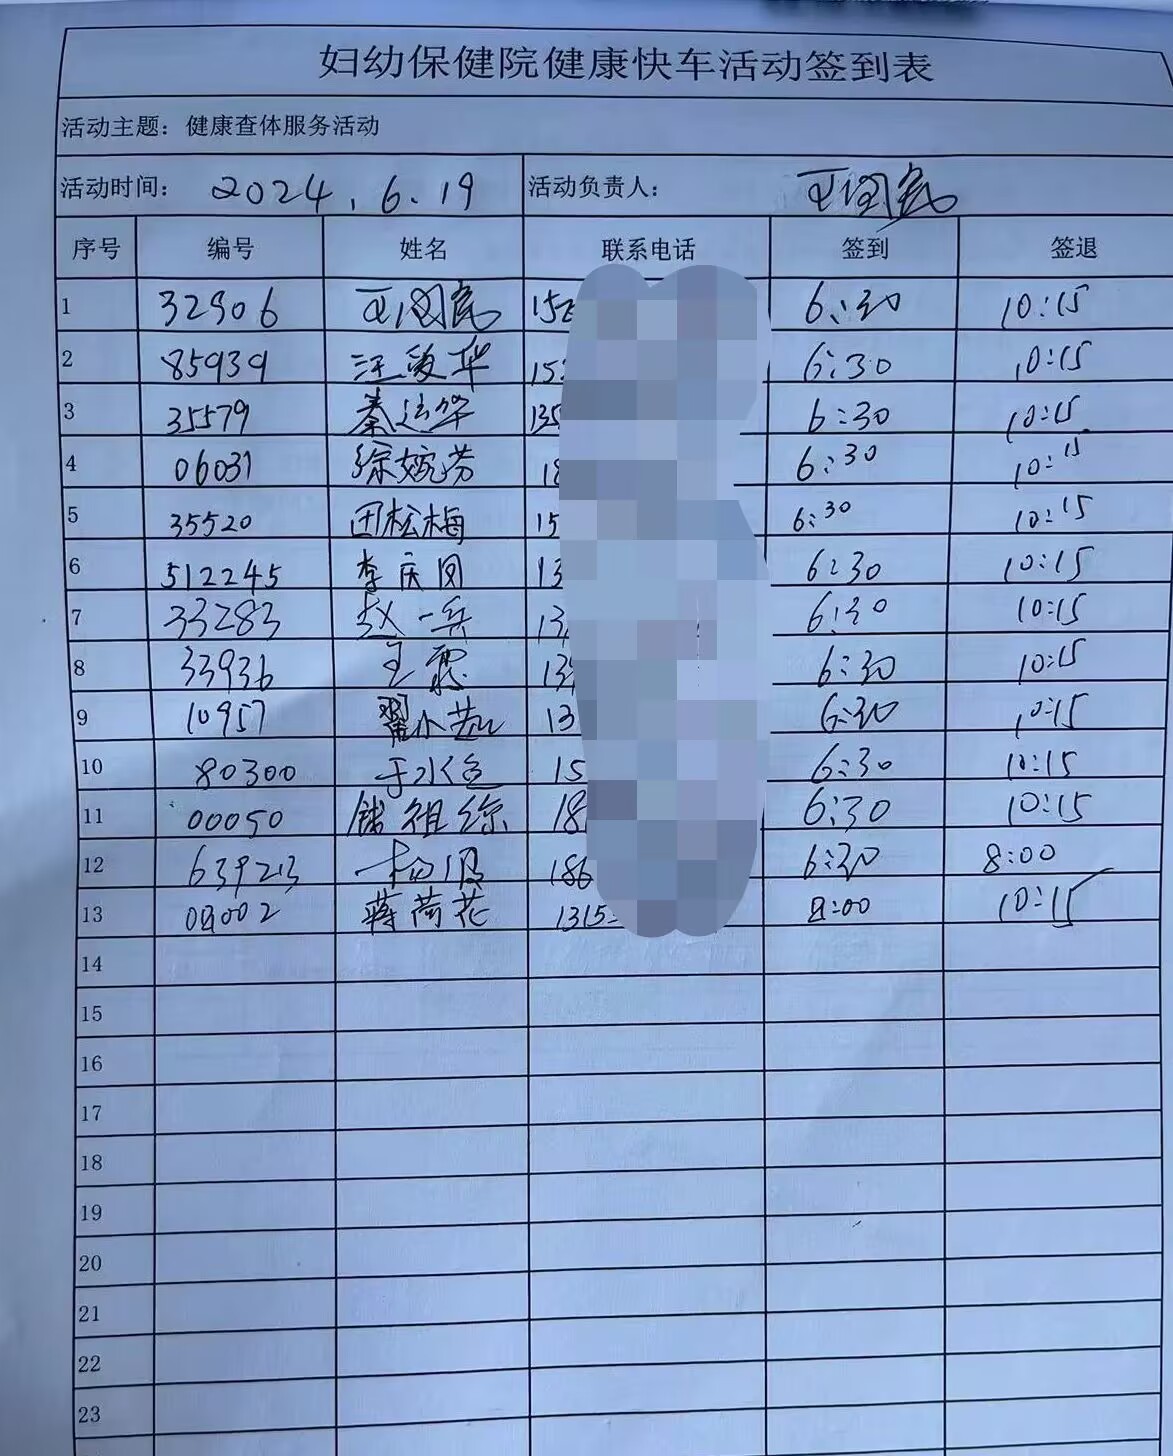 妇幼保健院健康快车活动签到表
活动主题：健康查体服务活动
活动时间： 2024.6.19 活动负责人：
序号 编号 姓名 联系电话 签到 签退
1 32906 6:30 10:15
2 85939 汪爱华 6:30 10:15
3 35579 秦运华 135 6:30 10:15
4 06031 徐婉芳 18 6:30 10:15
5 35520 田松梅 15 6:30 10:15
6 512245 李庆凤 13 6:30 10:15
7 33283 赵一兵 13 6:30 10:15
8 33936 王 13 6:30 10:15
9 10957 翟小 13 6:30 10:15
10 80300 于水 15 6:30 10:15
11 00050 钱祖综 18 6:30 10:15
12 639213 186 6:30 8:00
13 蒋荷花 1315 8:00 10:15
14
15
16
17
18
19
20
21
22
23